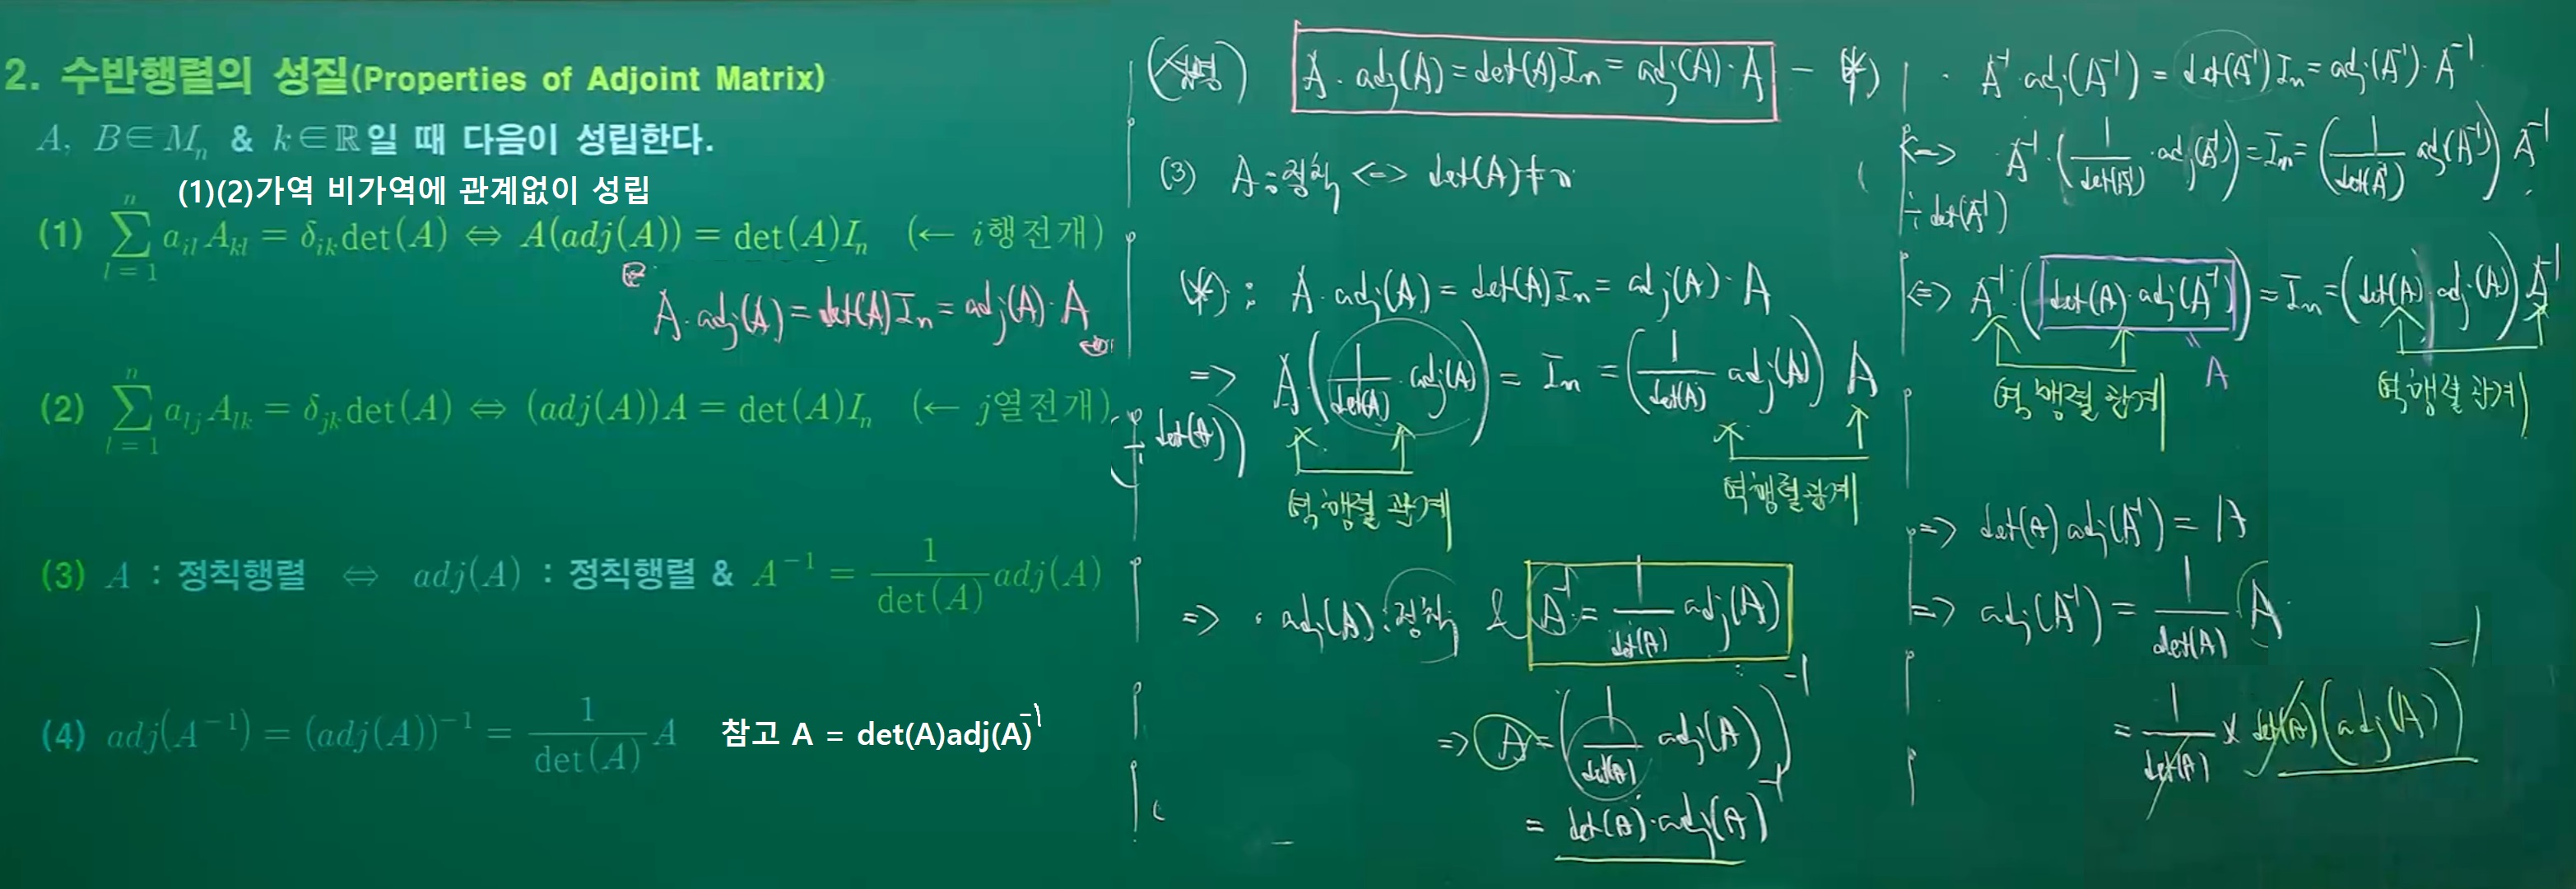 2. 수반행렬의 성질(Properties of Adjoint Matrix)
A, B∈M_n & k∈ℝ일 때 다음이 성립한다.
(1)(2)가역 비가역에 관계없이 성립
(1) ∑_{l=1}^{n} a_{il}A_{kl} = δ_{ik}det(A) ⇔ A(adj(A)) = det(A)I_n (← i행전개)
A·adj(A) = det(A)I_n = adj(A)·A
(2) ∑_{l=1}^{n} a_{lj}A_{lk} = δ_{jk}det(A) ⇔ (adj(A))A = det(A)I_n (← j열전개)
(3) A : 정칙행렬 ⇔ adj(A) : 정칙행렬 & A^{-1} = 1/det(A) adj(A)
(4) adj(A^{-1}) = (adj(A))^{-1} = 1/det(A) A 참고 A = det(A)adj(A)^{-1}
A·adj(A) = det(A)I_n = adj(A)·A — (*)
(3) A : 정칙 <=> det(A)≠0
(*) : A·adj(A) = det(A)I_n = adj(A)·A
=> A(1/det(A)·adj(A)) = I_n = (1/det(A) adj(A)) A
÷det(A))
역행렬 관계 역행렬관계
=> · adj(A) : 정칙 & A^{-1} = 1/det(A) adj(A)
=> A = (1/det(A) adj(A))^{-1}
= det(A)·adj(A)^{-1}
· A^{-1}·adj(A^{-1}) = det(A^{-1})I_n = adj(A^{-1})·A^{-1}
<=> A^{-1}·(1/det(A^{-1})·adj(A^{-1})) = I_n = (1/det(A^{-1}) adj(A^{-1})) A^{-1}
÷det(A^{-1}))
<=> A^{-1}(det(A)·adj(A^{-1})) = I_n = (det(A)·adj(A)) A^{-1}
" A
역행렬 관계 역행렬 관계
=> det(A)adj(A^{-1}) = A
=> adj(A^{-1}) = 1/det(A) A
= 1/det(A) × det(A)(adj(A))^{-1}